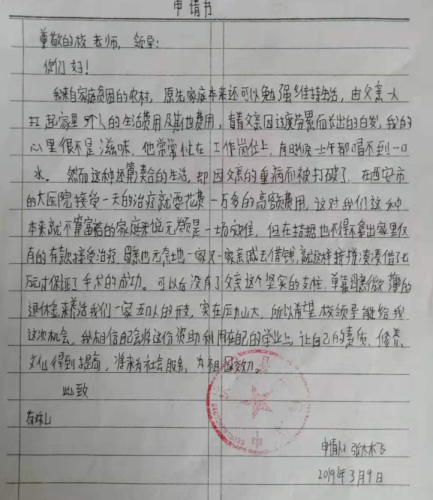 申请书
尊敬的校老师，领导：
你们好！
我来自家庭贫困的农村，原先家庭本来还可以勉强维持生活，由父亲一人
扛起家里5个人的生活费用及其他费用，看着父亲因过度劳累而长出的白发，我的
心里很不是滋味，他常常忙在工作岗位上，有时候一上午都喝不到一口
水。然而这种还算美好的生活，却因父亲的重病而被打破了，在西安市
的大医院接受一天的治疗就要花费一万多的高额费用，这对我们这种
本来就不算富裕的家庭来说无疑是一场灾难，但在拮据也不得不拿出家里仅
有的存款接受治疗，母亲四无，一家又一家亲戚去借钱，就这样拼拼凑凑借了七
万才保证了手术的成功。可以后没有了父亲这个坚实的支柱，单靠母亲微薄的
退休金来养活我们一家五口人的开支，实在压力山大，所以希望校领导能给我
这次机会，我相信我会将这份资助利用在自己的学业上，让自己的素质、修养、
文化得到提高，将来为社会服务，为祖国效力。
此致
申请人
2019年3月9日